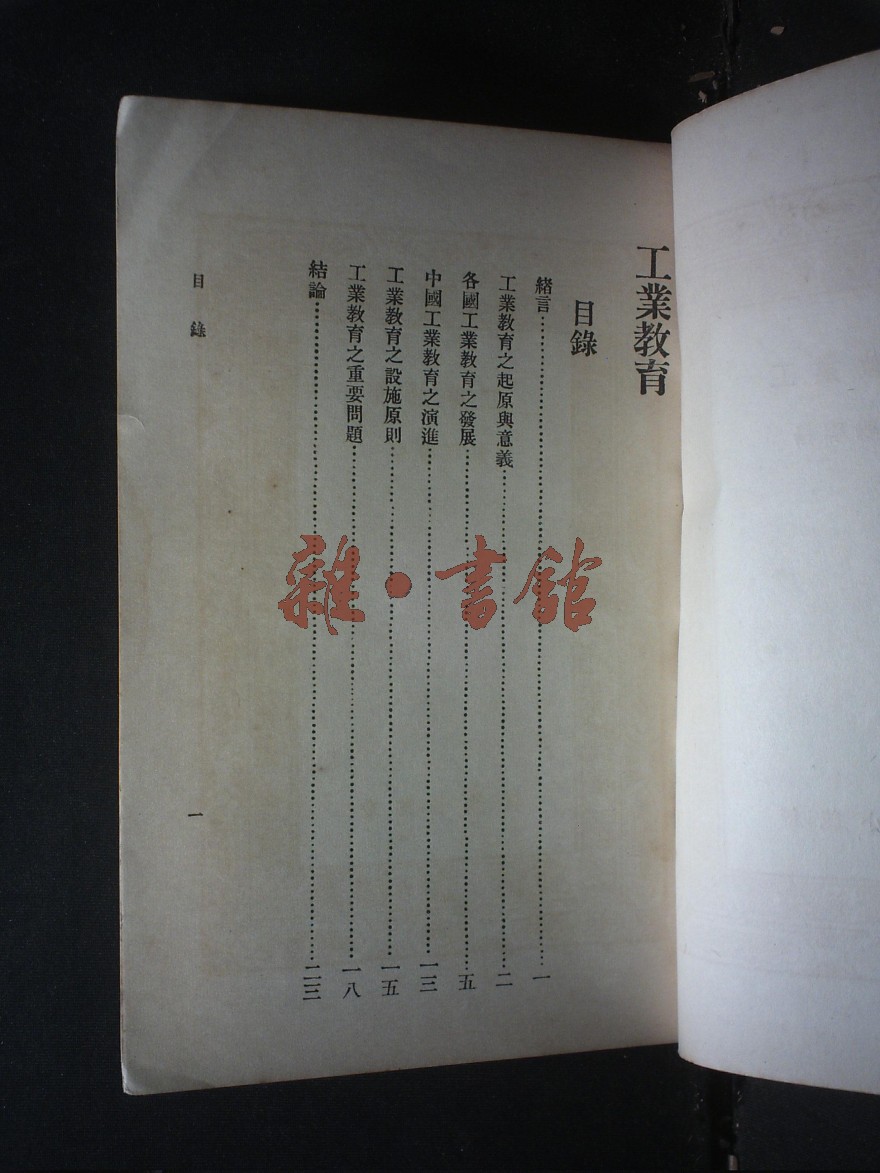 工業教育
目錄
緒言……一
工業教育之起原與意義……二
各國工業教育之發展……五
中國工業教育之演進……一三
工業教育之設施原則……一五
工業教育之重要問題……一八
結論……二三
目錄
一
雜·書館